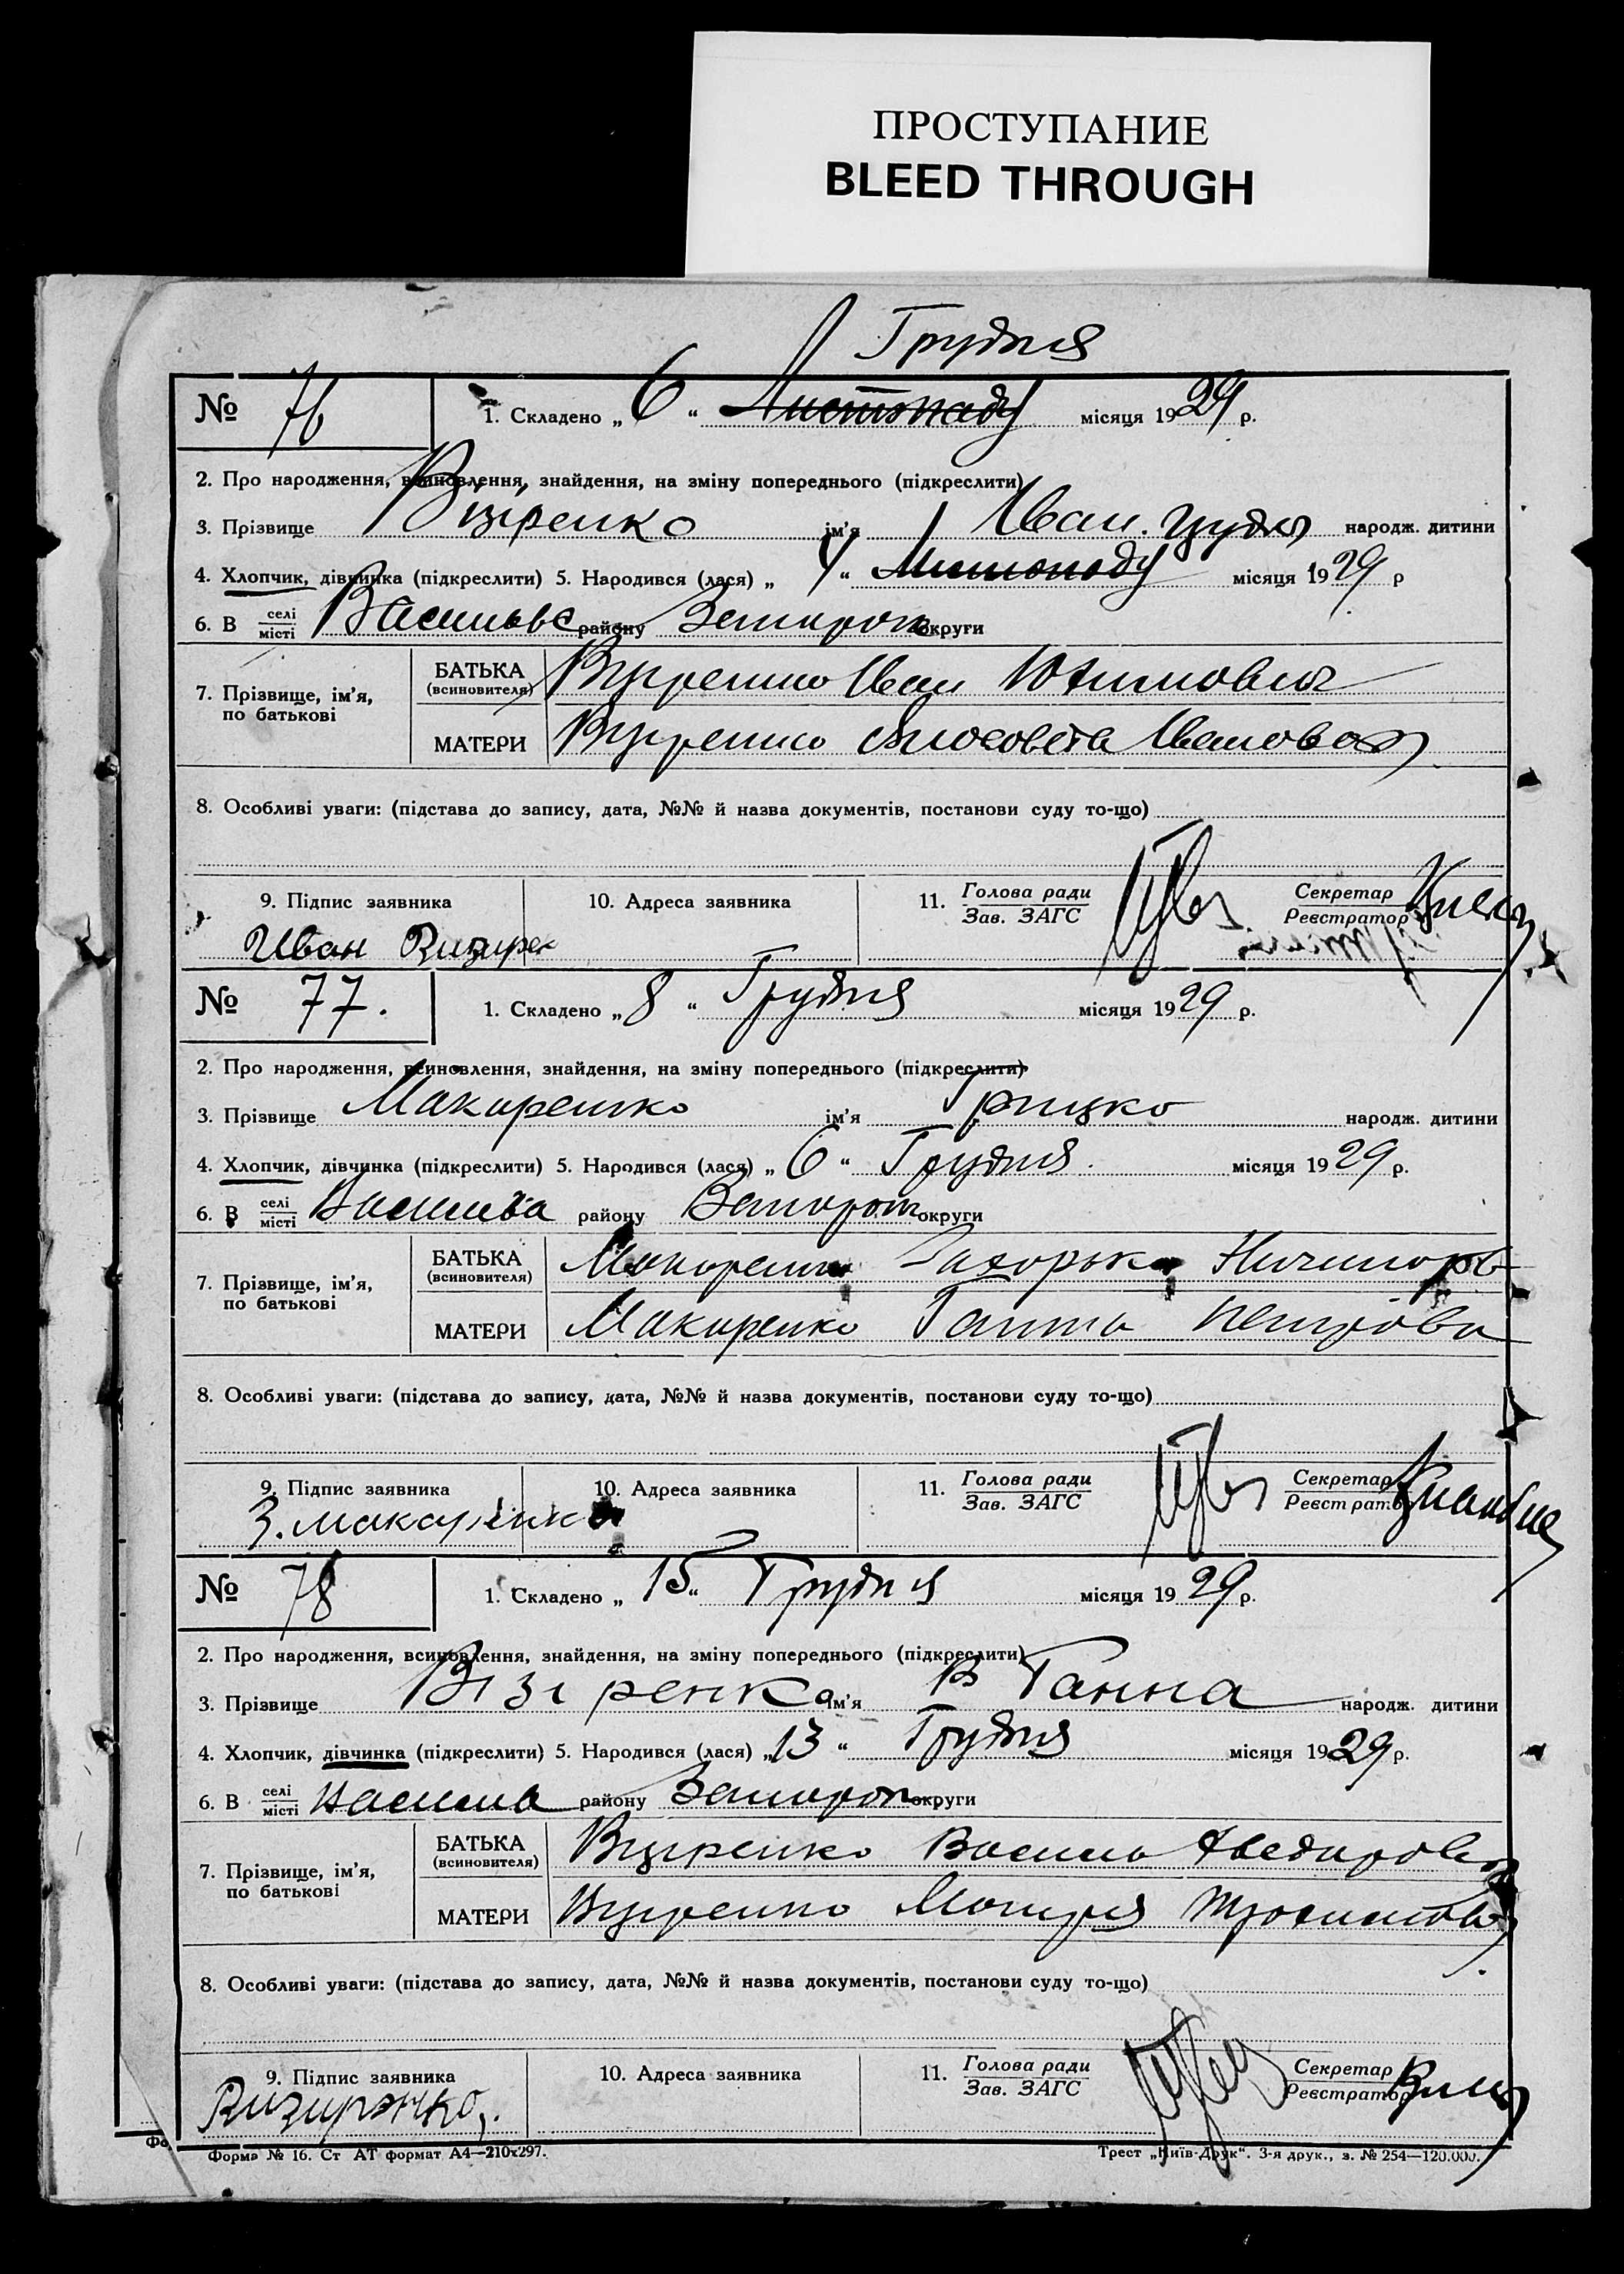 ПРОСТУПАНИЕ
BLEED THROUGH
Грудня
№ 76 1. Складено „ 6 “ Листопаду місяця 1929 р.
2. Про народження, всиновлення, знайдення, на зміну попереднього (підкреслити)
3. Прізвище Візіренко ім'я Іван. грудня народж. дитини
4. Хлопчик, дівчинка (підкреслити) 5. Народився (лася) „ 4 “ Листопаду місяця 1929 р
6. В селі/місті району Запорож округи
7. Прізвище, ім'я, по батькові
БАТЬКА (всиновителя) Візіренко Іван Юхимович
МАТЕРИ Візіренко Івановна
8. Особливі уваги: (підстава до запису, дата, №№ й назва документів, постанови суду то-що)
9. Підпис заявника 10. Адреса заявника 11. Голова ради/Зав. ЗАГС Секретар/Реєстратор
Иван
№ 77. 1. Складено „ 8 “ Грудня місяця 1929 р.
2. Про народження, всиновлення, знайдення, на зміну попереднього (підкреслити)
3. Прізвище Макаренко ім'я Грицко народж. дитини
4. Хлопчик, дівчинка (підкреслити) 5. Народився (лася) „ 6 “ Грудня місяця 1929 р.
6. В селі/місті району Запорож округи
7. Прізвище, ім'я, по батькові
БАТЬКА (всиновителя) Макаренко
МАТЕРИ Макаренко Ганна Петрівна
8. Особливі уваги: (підстава до запису, дата, №№ й назва документів, постанови суду то-що)
9. Підпис заявника 10. Адреса заявника 11. Голова ради/Зав. ЗАГС Секретар/Реєстратор
З. Макаренко
№ 78 1. Складено „ 15 “ Грудня місяця 1929 р.
2. Про народження, всиновлення, знайдення, на зміну попереднього (підкреслити)
3. Прізвище Візіренко ім'я Ганна народж. дитини
4. Хлопчик, дівчинка (підкреслити) 5. Народився (лася) „ 13 “ Грудня місяця 1929 р.
6. В селі/місті району Запорож округи
7. Прізвище, ім'я, по батькові
БАТЬКА (всиновителя) Візіренко Василь
МАТЕРИ Візіренко
8. Особливі уваги: (підстава до запису, дата, №№ й назва документів, постанови суду то-що)
9. Підпис заявника 10. Адреса заявника 11. Голова ради/Зав. ЗАГС Секретар/Реєстратор
Визиренко
Форма № 16. Ст АТ формат А4—210х297. Трест „Київ-Друк“. 3-я друк., з. № 254—120.000.